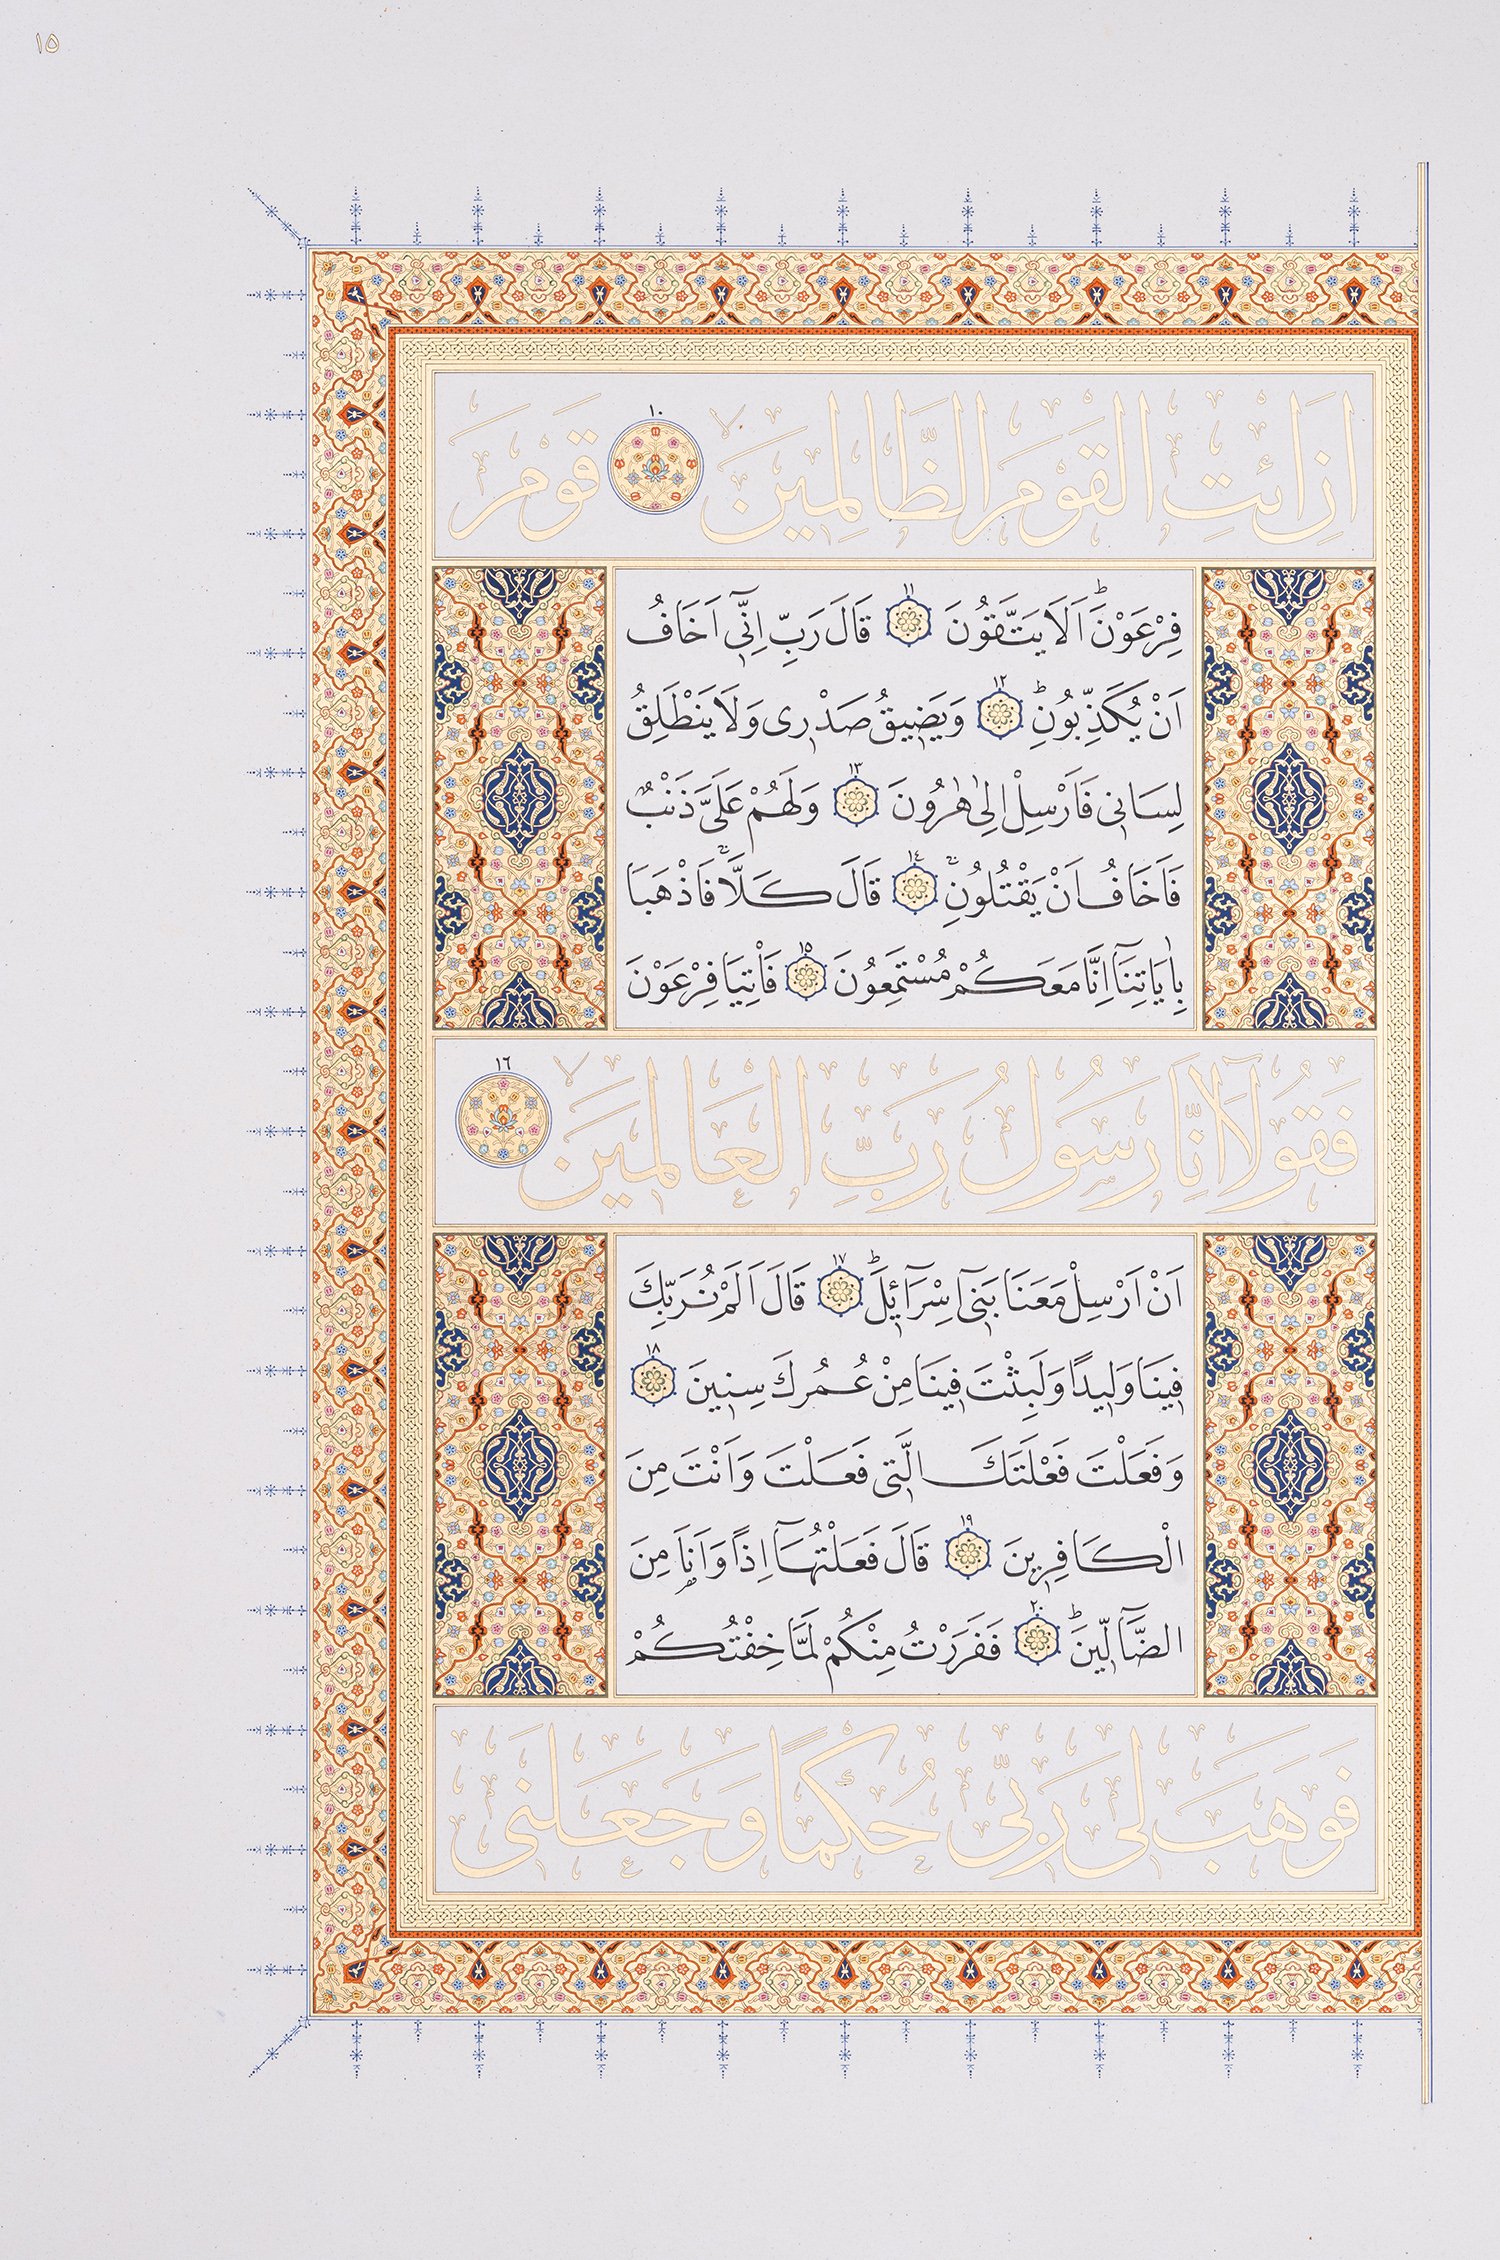 ١٥
اِنِ ائْتِ الْقَوْمَ الظَّالِمِينَۙ ١٠ قَوْمَ
فِرْعَوْنَۜ اَلَا يَتَّقُونَ ١١ قَالَ رَبِّ اِنِّٓي اَخَافُ
اَنْ يُكَذِّبُونِۜ ١٢ وَيَضِيقُ صَدْرِي وَلَا يَنْطَلِقُ
لِسَانِي فَاَرْسِلْ اِلٰى هٰرُونَ ١٣ وَلَهُمْ عَلَيَّ ذَنْبٌ
فَاَخَافُ اَنْ يَقْتُلُونِۚ ١٤ قَالَ كَلَّاۚ فَاذْهَبَا
بِاٰيَاتِنَٓا اِنَّا مَعَكُمْ مُسْتَمِعُونَ ١٥ فَأْتِيَا فِرْعَوْنَ
فَقُولَٓا اِنَّا رَسُولُ رَبِّ الْعَالَمِينَۙ ١٦
اَنْ اَرْسِلْ مَعَنَا بَنِٓي اِسْرَٓائِلَۜ ١٧ قَالَ اَلَمْ نُرَبِّكَ
فِينَا وَلِيدًا وَلَبِثْتَ فِينَا مِنْ عُمُرِكَ سِنِينَ ١٨
وَفَعَلْتَ فَعْلَتَكَ الَّتِي فَعَلْتَ وَاَنْتَ مِنَ
الْكَافِرِينَ ١٩ قَالَ فَعَلْتُهَٓا اِذًا وَاَنَا۬ مِنَ
الضَّٓالِّينَۜ ٢٠ فَفَرَرْتُ مِنْكُمْ لَمَّا خِفْتُكُمْ
فَوَهَبَ لِي رَبِّي حُكْمًا وَجَعَلَنِي